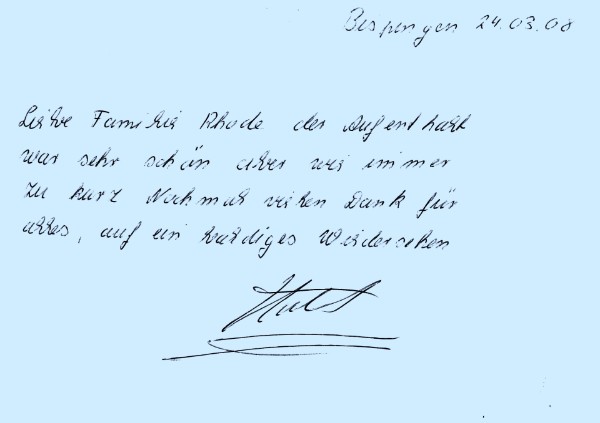 Bispingen 24.03.08
Liebe Familie Rhode der Aufenthalt
war sehr schön aber wie immer
zu kurz Nochmals vielen Dank für
alles, auf ein baldiges Wiedersehen